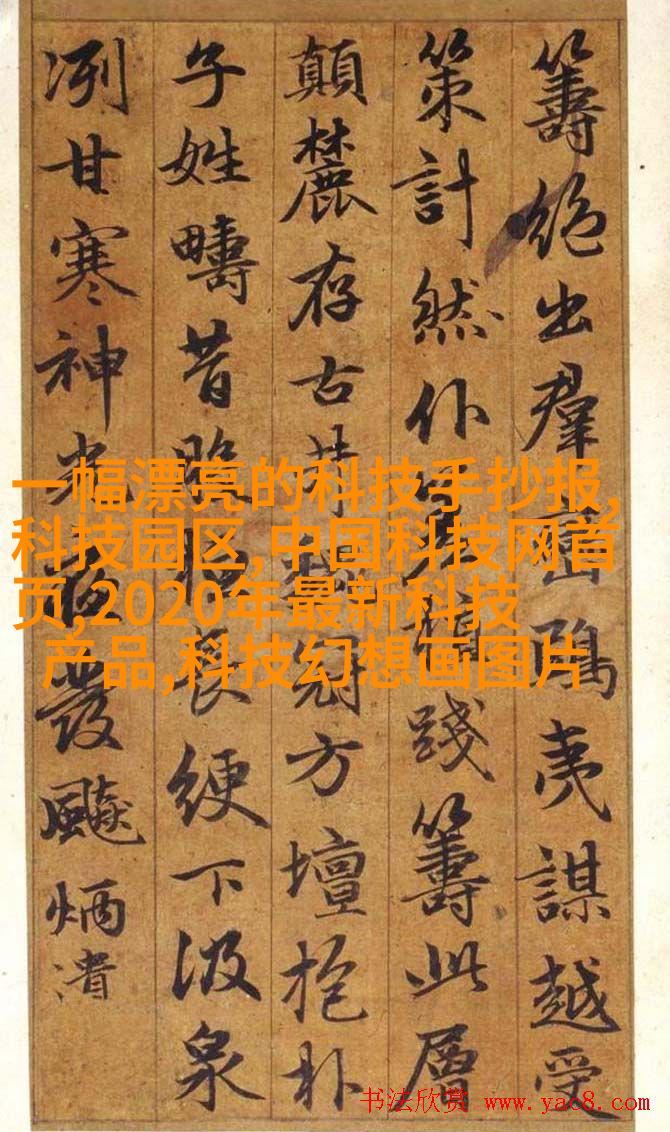 籌絕出羣鴟夷謀越受
策計然仆踐籌此層
顛麓存古井冠方壇抱朴
子姓疇昔長綆下汲泉
冽甘寒神光夜發飈炳
一幅漂亮的科技手抄报,
科技园区,中国科技网首
页,2020年最新科技
产品,科技幻想画图片
书法欣赏 www.yac8.com